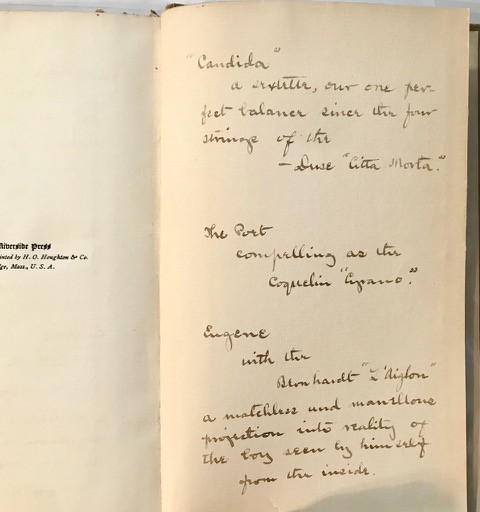 Riverside Press
inted by H. O. Houghton & Co.
ge, Mass., U. S. A.
"Candida"
a sextette, our one per-
fect balance since the four
strings of the
- Duse "Citta Morta."
The Poet
compelling as the
Coquelin "Cyrano."
Eugene
with the
Bernhardt "L'Aiglon"
a matchless and marvellous
projection into reality of
the boy seen by himself
from the inside.